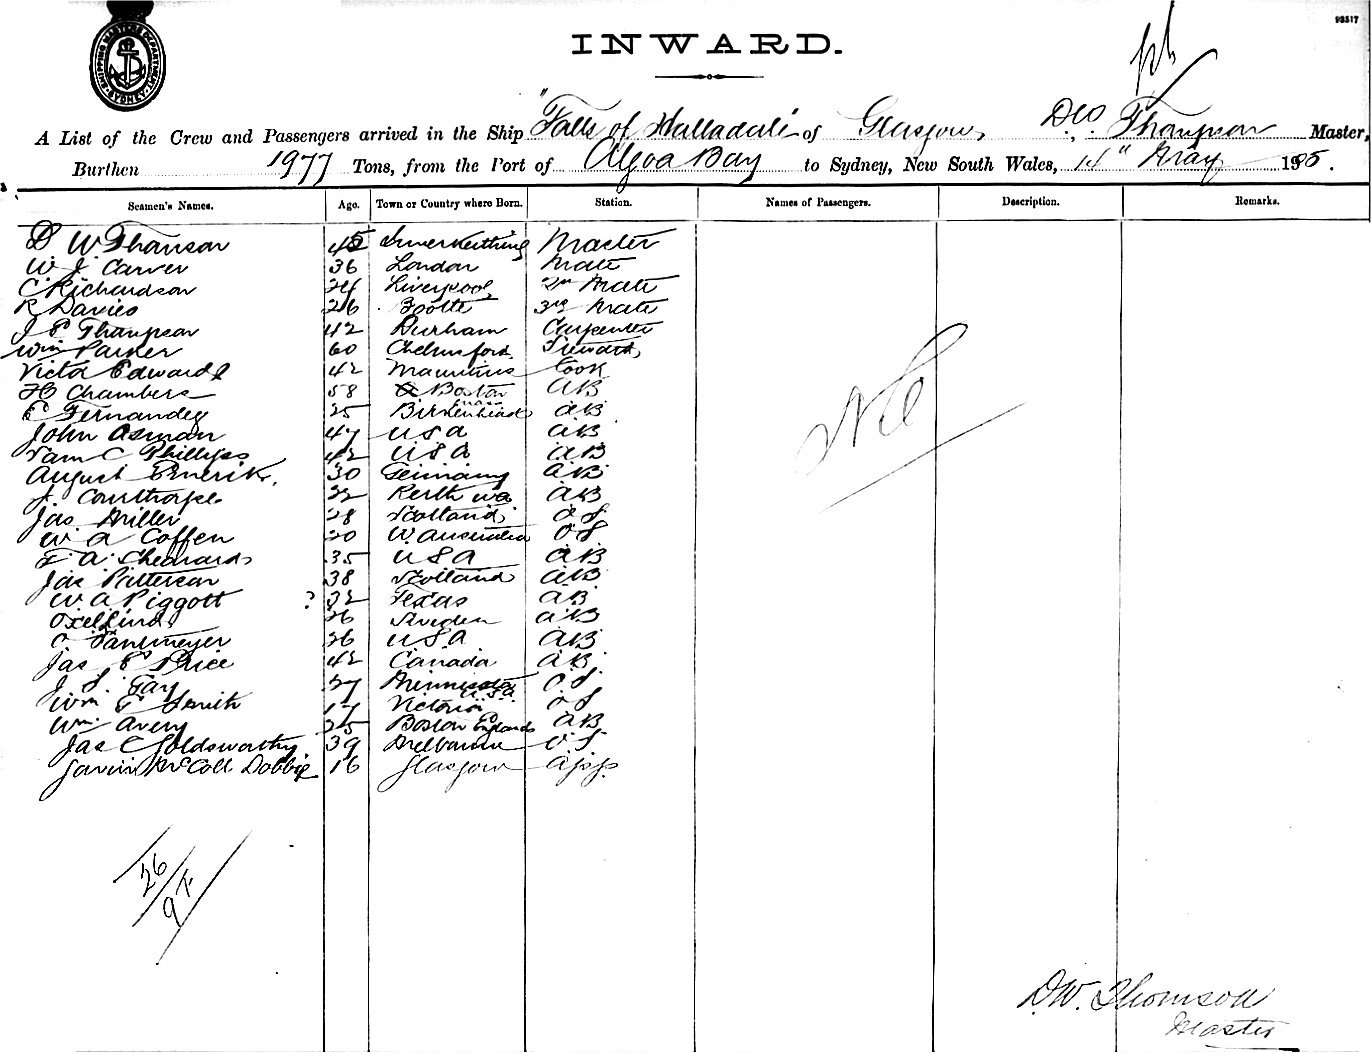 93517
SHIPPING MASTERS DEPARTMENT SYDNEY
INWARD.
A List of the Crew and Passengers arrived in the Ship "Falls of Halladale" of Glasgow, D W Thompson Master,
Burthen 1977 Tons, from the Port of Algoa Bay to Sydney, New South Wales, 14" May 1905.
Seamen's Names. Age. Town or Country where Born. Station. Names of Passengers. Description. Remarks.
D W Thomson 45 Inverkeithing Master
W J Carver 36 London Mate
C Richardson 24 Liverpool 2nd Mate
R Davies 26 Bootle 3rd Mate
J E Thompson 42 Durham Carpenter
Wm Parker 60 Chelmsford Steward
Victor Edwards 42 Mauritius Cook
H Chambers 58 Boston Mass AB
E Fernandez 25 Birkenhead AB
John Osman 47 USA AB
Sam C Phillips 42 USA AB
August 30 Germany AB
J. Coulthorpe 22 Perth WA AB
Jas Miller 28 Scotland OS
W A Coffen 20 W Australia OS
E A 35 USA AB
Jas Patterson 38 Scotland AB
W A Piggott ? 32 Texas AB
Axel Lind 26 Sweden AB
C 26 USA AB
Jas E Price 42 Canada AB
J S Gay 27 Minnesota USA OS
Wm E Smith 17 Victoria OS
Wm Avery 25 Boston England AB
Jas C Goldsworthy 39 Melbourne OS
Gavin McColl Dobbie 16 Glasgow App
26
D.W. Thomson
Master